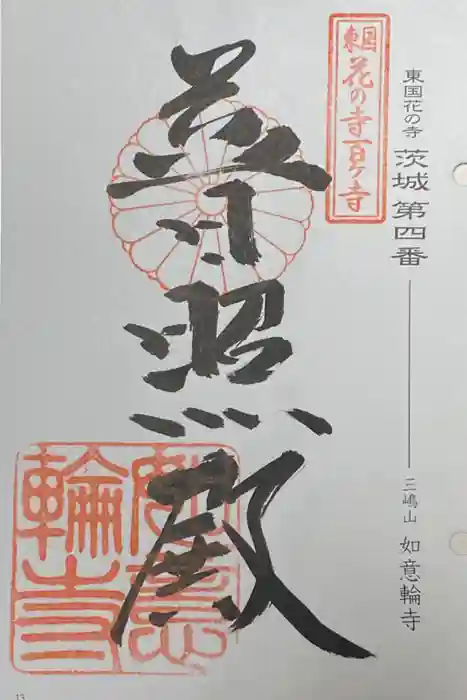 東国花の寺 茨城 第四番
三嶋山 如意輪寺
東国
花の寺百ヶ寺
照殿
如意
輪寺
13